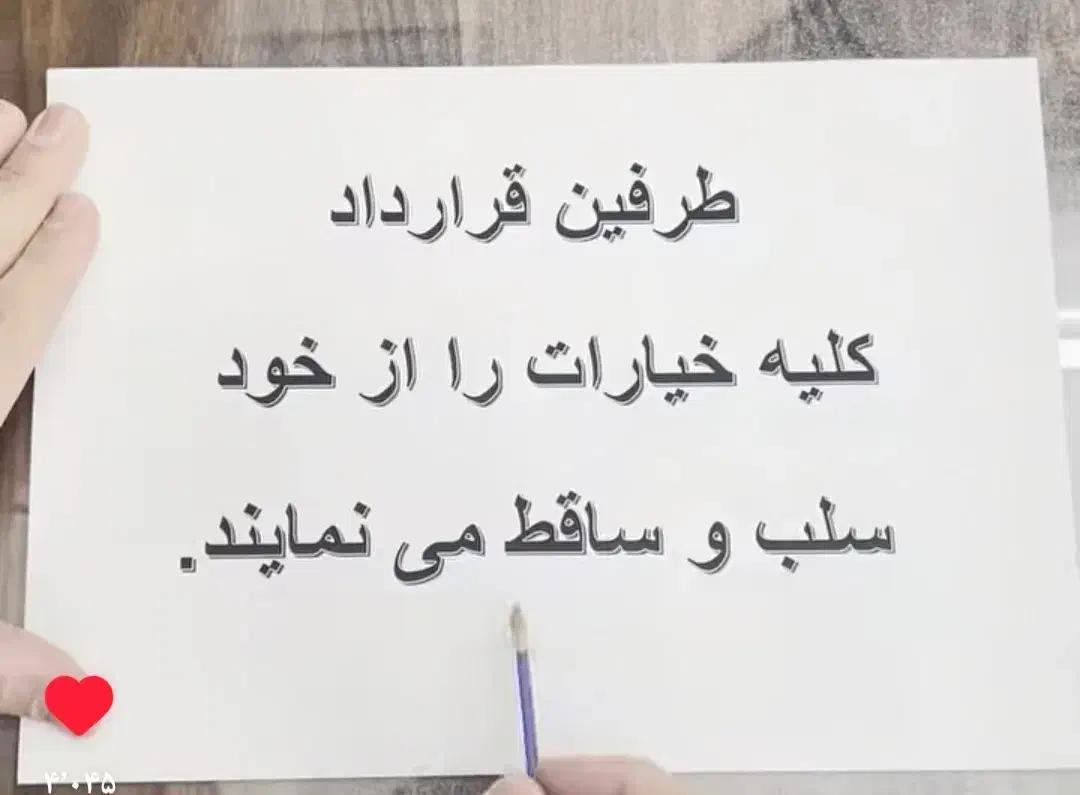 طرفین قرارداد
کلیه خیارات را از خود
سلب و ساقط می نمایند.
۴٬۰۴۵